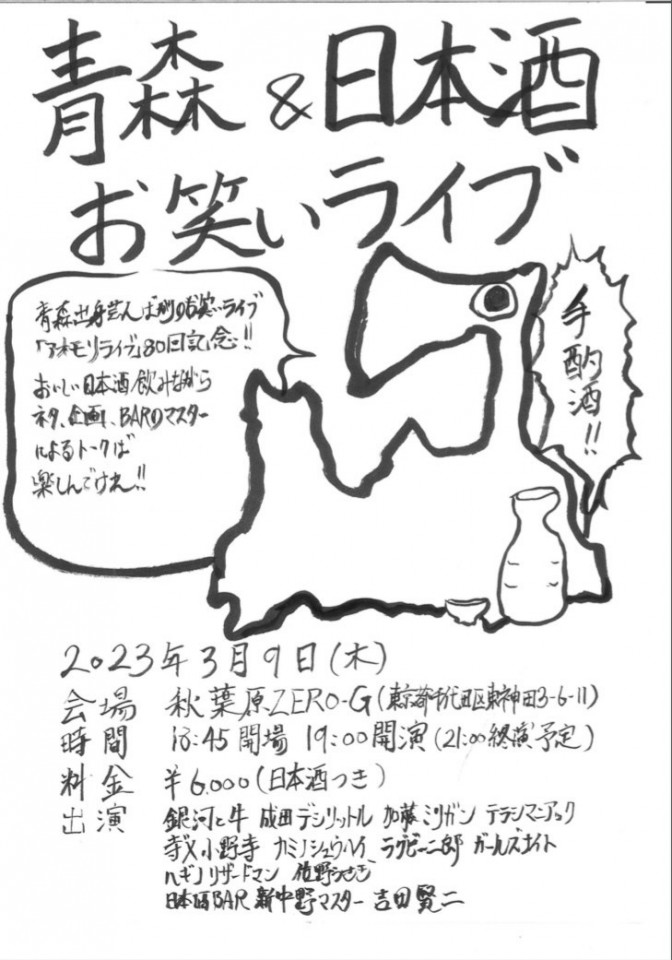 青森&日本酒
お笑いライブ
青森出身芸人ばかりのお笑いライブ
「アオモリライブ」80回記念!!
おいしい日本酒飲みながら
ネタ、企画、BARのマスター
によるトークば
楽しんでけえ!!
手酌酒!!
2023年3月9日(木)
会場 秋葉原ZERO-G(東京都千代田区東神田3-6-11)
時間 18:45開場 19:00開演(21:00終演予定)
料金 ¥6,000(日本酒つき)
出演 銀河と牛 成田デシリットル 加藤ミリガン テラシマニアック
寺×小野寺 カミノシュウヘイ ラグビー二郎 ガールズナイト
ハギノリザードマン 佐野
日本酒BAR 新中野マスター 吉田賢二